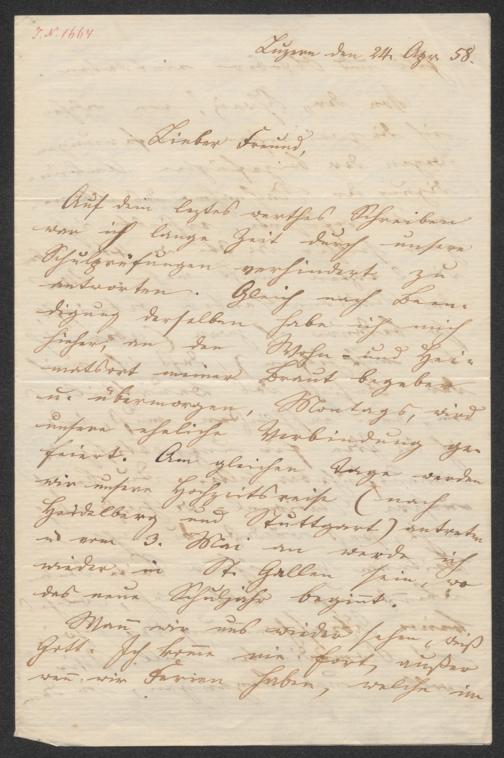 J.N. 1664
Luzern den 24. Apr. 58.
Lieber Freund,
Auf dein leztes werthes Schreiben
war ich lange Zeit durch unsere
Schulprüfungen verhindert zu
antworten. Gleich nach Been-
digung derselben habe ich mich
hieher, an den Wohn- und Hei-
matsort meiner Braut begeben
u. übermorgen, Montags, wird
unsere eheliche Verbindung ge-
feiert. Am gleichen Tage werden
wir unsere Hochzeitsreise (nach
Heidelberg und Stuttgart) antreten
u. vom 3. Mai an werde ich
wieder in St. Gallen sein, wo
das neue Schuljahr beginnt.
Wann wir uns wieder sehen, weiß
Gott. Ich komme nie fort, außer
wenn wir Ferien haben, welche im